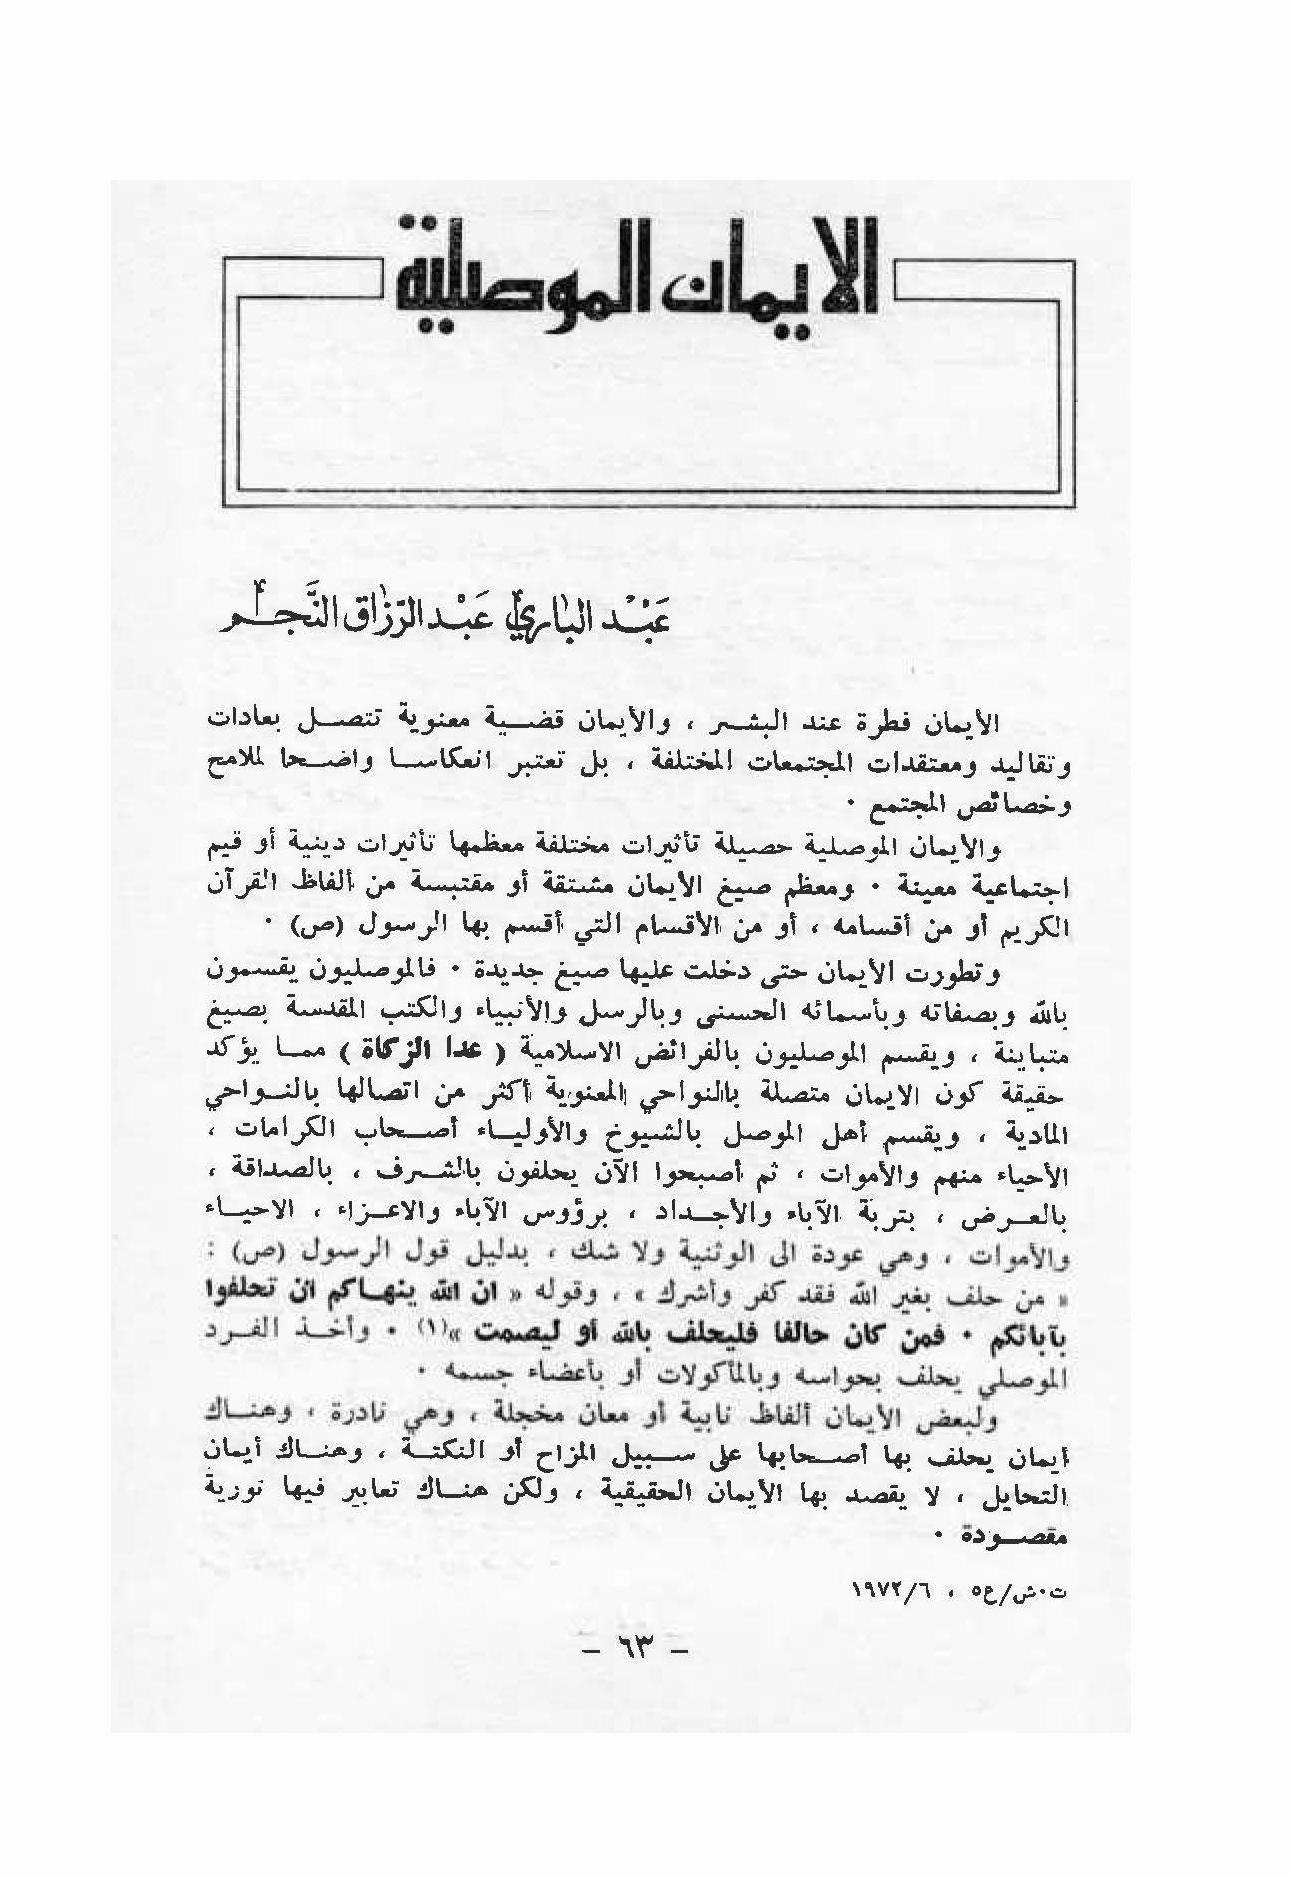 الايمان الموصلية
عَبْد الباري عَبْد الرّزاق النَّجم
الأيمان فطرة عند البشر ، والأيمان قضية معنوية تتصل بعادات
وتقاليد ومعتقدات المجتمعات المختلفة ، بل تعتبر انعكاسا واضحا لملامح
وخصائص المجتمع ٠
والأيمان الموصلية حصيلة تأثيرات مختلفة معظمها تأثيرات دينية أو قيم
اجتماعية معينة ٠ ومعظم صيغ الأيمان مشتقة أو مقتبسة من ألفاظ القرآن
الكريم أو من أقسامه ، أو من الأقسام التي أقسم بها الرسول (ص) ٠
وتطورت الأيمان حتى دخلت عليها صيغ جديدة ٠ فالموصليون يقسمون
بالله وبصفاته وبأسمائه الحسنى وبالرسل والأنبياء والكتب المقدسة بصيغ
متباينة ، ويقسم الموصليون بالفرائض الاسلامية ( عدا الزكاة ) مما يؤكد
حقيقة كون الايمان متصلة بالنواحي المعنوية أكثر من اتصالها بالنواحي
المادية ، ويقسم أهل الموصل بالشيوخ والأولياء أصحاب الكرامات ،
الأحياء منهم والأموات ، ثم أصبحوا الآن يحلفون بالشرف ، بالصداقة ،
بالعرض ، بتربة الآباء والأجداد ، برؤوس الآباء والاعزاء ، الاحياء
والأموات ، وهي عودة الى الوثنية ولا شك ، بدليل قول الرسول (ص) :
« من حلف بغير الله فقد كفر وأشرك » ، وقوله « ان الله ينهاكم ان تحلفوا
بآبائكم ٠ فمن كان حالفا فليحلف بالله أو ليصمت »(١) ٠ وأخذ الفرد
الموصلي يحلف بحواسه وبالمأكولات أو بأعضاء جسمه ٠
ولبعض الأيمان ألفاظ نابية أو معان مخجلة ، وهي نادرة ، وهناك
أيمان يحلف بها أصحابها على سبيل المزاح أو النكتة ، وهناك أيمان
التحايل ، لا يقصد بها الأيمان الحقيقية ، ولكن هناك تعابير فيها تورية
مقصودة ٠
ت٠ش/ع٥ ، ١٩٧٢/٦
– ٦٣ –